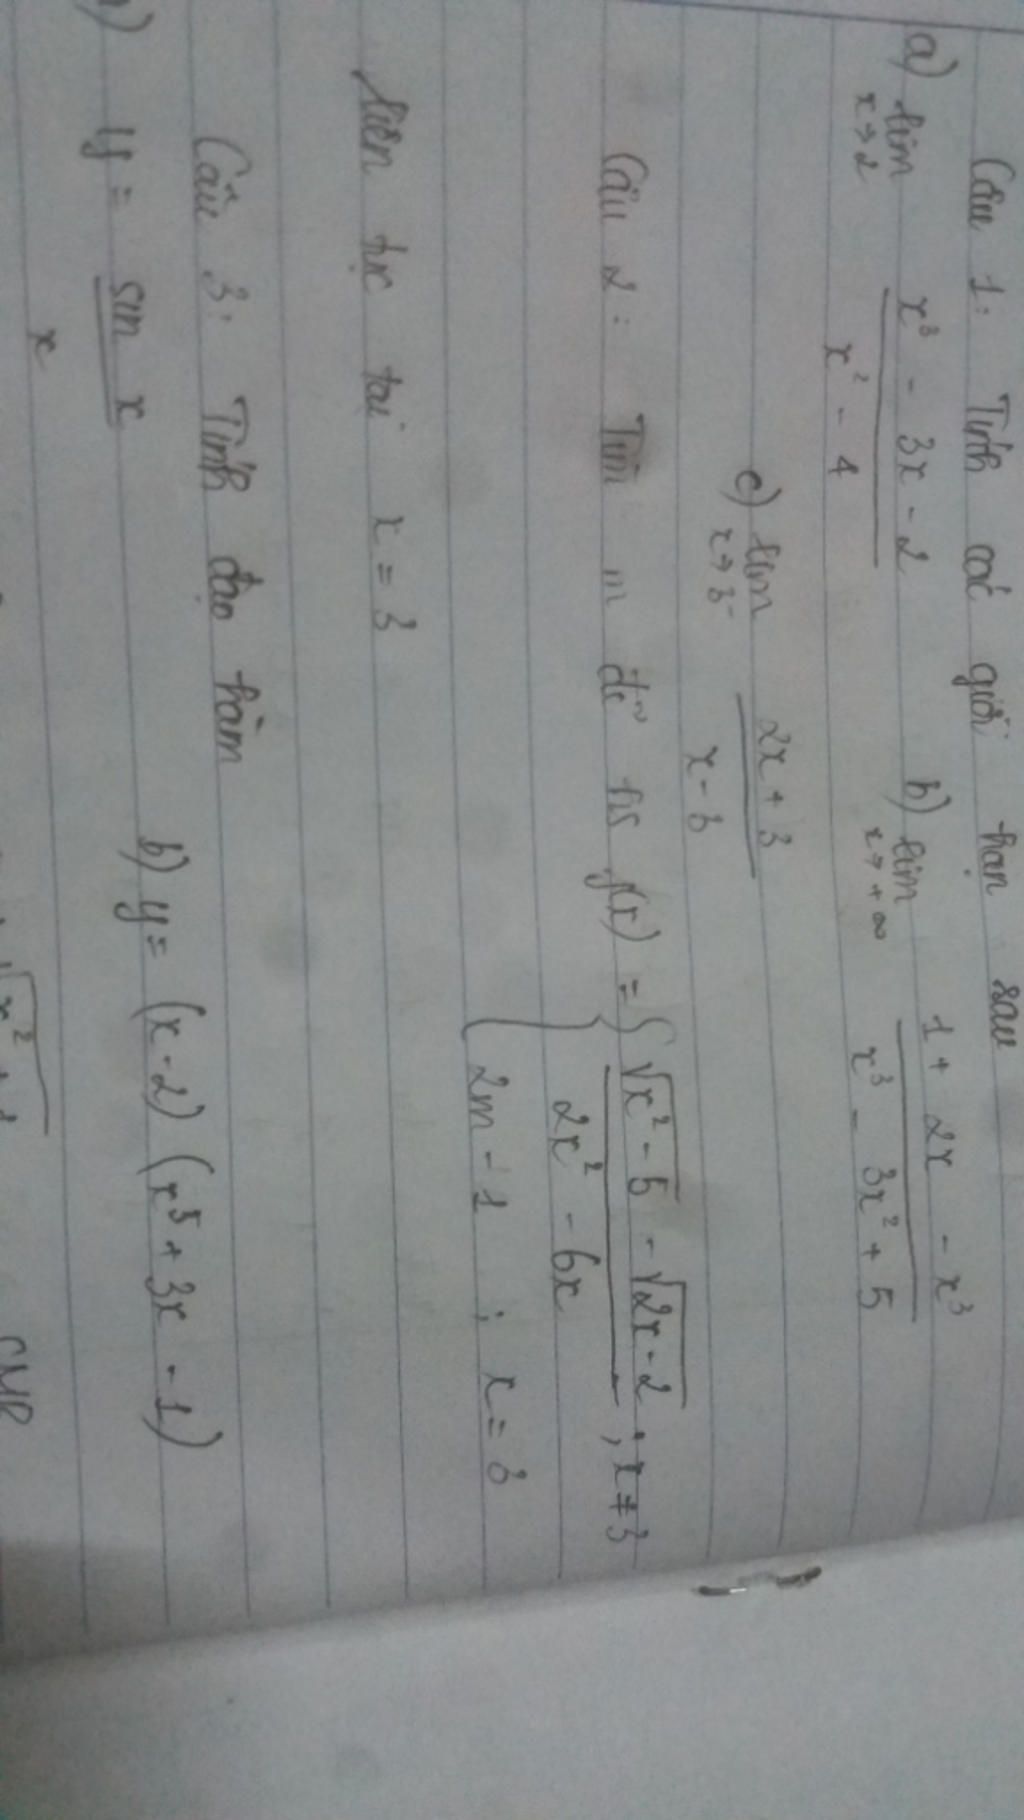 Câu 1: Tính các giới hạn sau
a) lim x→2 (x³ - 3x - 2)/(x² - 4) b) lim x→+∞ (1 + 2x - x³)/(x³ - 3x² + 5)
c) lim x→3⁻ (2x + 3)/(x - 3)
Câu 2: Tìm m để hs f(x) = { (√(x² - 5) - √(2x - 2))/(2x² - 6x) ; x ≠ 3
2m - 1 ; x = 3
liên tục tại x = 3
Câu 3: Tính đạo hàm
a) y = (sin x)/x b) y = (x - 2)(x⁵ + 3x - 1)
CMR